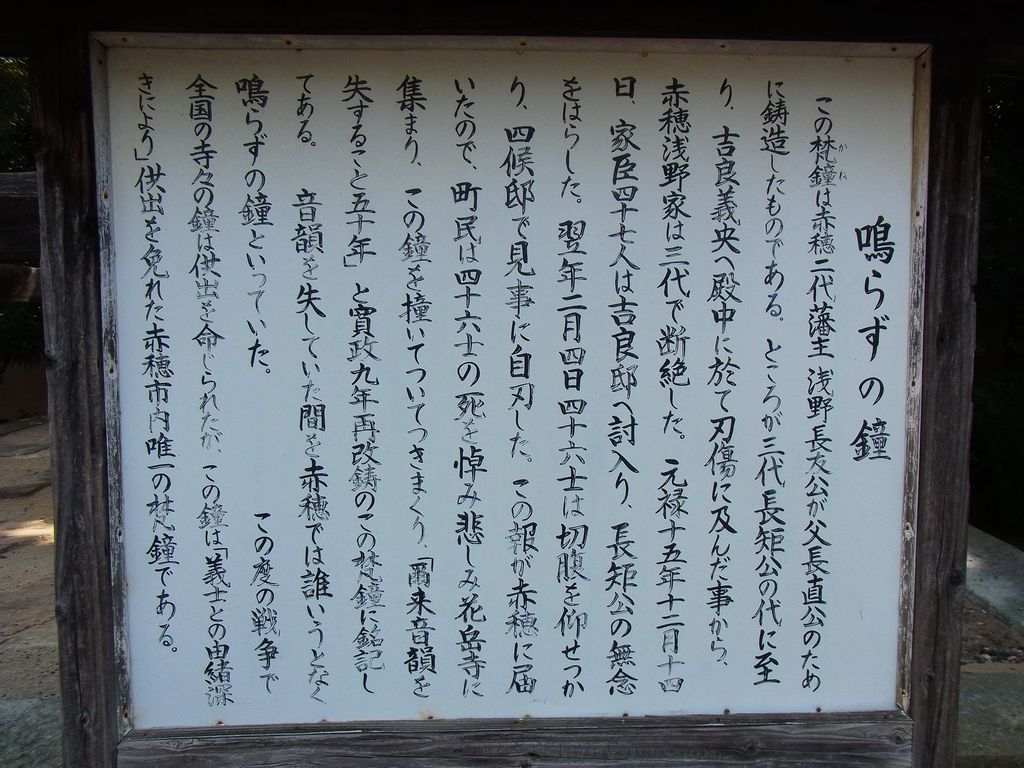 鳴らずの鐘
この梵鐘は赤穂二代藩主浅野長友公が父長直公のため
に鋳造したものである。ところが三代長矩公の代に至
り、吉良義央へ殿中に於て刃傷に及んだ事から、
赤穂浅野家は三代で断絶した。元禄十五年十二月十四
日、家臣四十七人は吉良邸へ討入り、長矩公の無念
をはらした。翌年二月四日四十六士は切腹を仰せつか
り、四候邸で見事に自刃した。この報が赤穂に届
いたので、町民は四十六士の死を悼み悲しみ花岳寺に
集まり、この鐘を撞いてついてつきまくり、「爾来音韻を
失すること五十年」と寛政九年再改鋳のこの梵鐘に銘記し
てある。　音韻を失していた間を赤穂では誰いうとなく
鳴らずの鐘といっていた。　この度の戦争で
全国の寺々の鐘は供出を命じられたが、この鐘は「義士との由緒深
きにより」供出を免れた赤穂市内唯一の梵鐘である。
かね